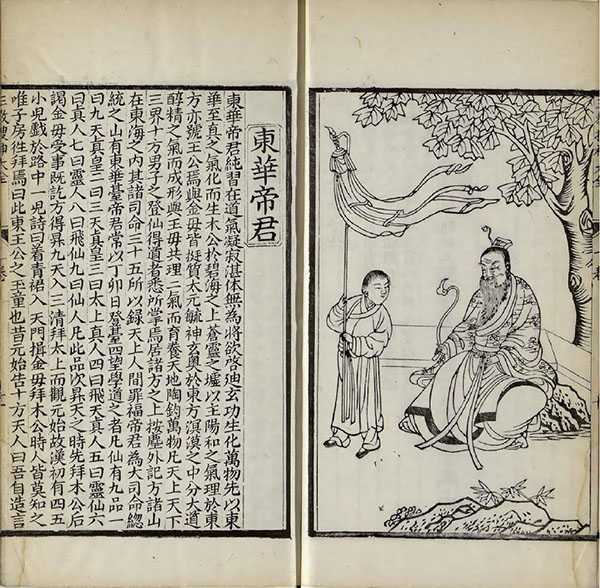 東華帝君
東華帝君純習在道氣凝寂湛体無為將欲啓迪玄功生化萬物先以東
華至真之氣化而生木公於碧海之上蒼靈之墟以主陽和之氣理於東
方亦號王公焉與金母皆挺質太元毓神玄奧於東方溟漠之中分大道
醇精之氣而成形與王母共理二氣而育養天地陶鈞萬物凡天上天下
三界十方男子之登仙得道者悉所掌焉居諸方之上按塵外記方諸山
在東海之内其諸司命三十五所以录天上人間罪福帝君為大司命總
統之山有東華臺帝君常以丁卯日登臺四望學道之者凡仙有九品一
曰九天真皇二曰三天真皇三曰太上真人四曰飛天真人五曰靈仙六
曰真人七曰靈人八曰飛仙九曰仙人凡此品次昇天之時先拜木公后
謁金母受事既訖方得昇九天入三清拜太上而觀元始故漢初有四五
小児戲於路中一児詩曰着青裙入天門揖金母拜木公時人皆莫知之
唯子房往拜焉曰此東王公之玉童也昔元始告十方天人曰吾自造言